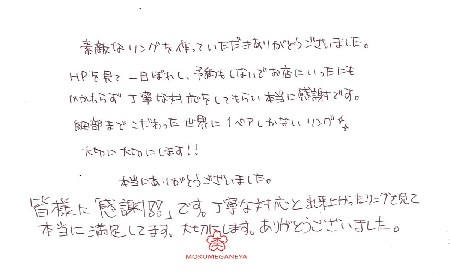 素敵なリングを作っていただきありがとうございました。
HPを見て一目ぼれし、予約もしないでお店にいったにも
かかわらず丁寧な対応をしてもらい本当に感謝です。
細部までこだわった世界に1ペアしかないリングを
大切に大切にします!!
本当にありがとうございました。
皆様に「感謝!!」です。丁寧な対応と出来上がったリングを見て
本当に満足してます。大切にします。ありがとうございました。
MOKUMEGANEYA